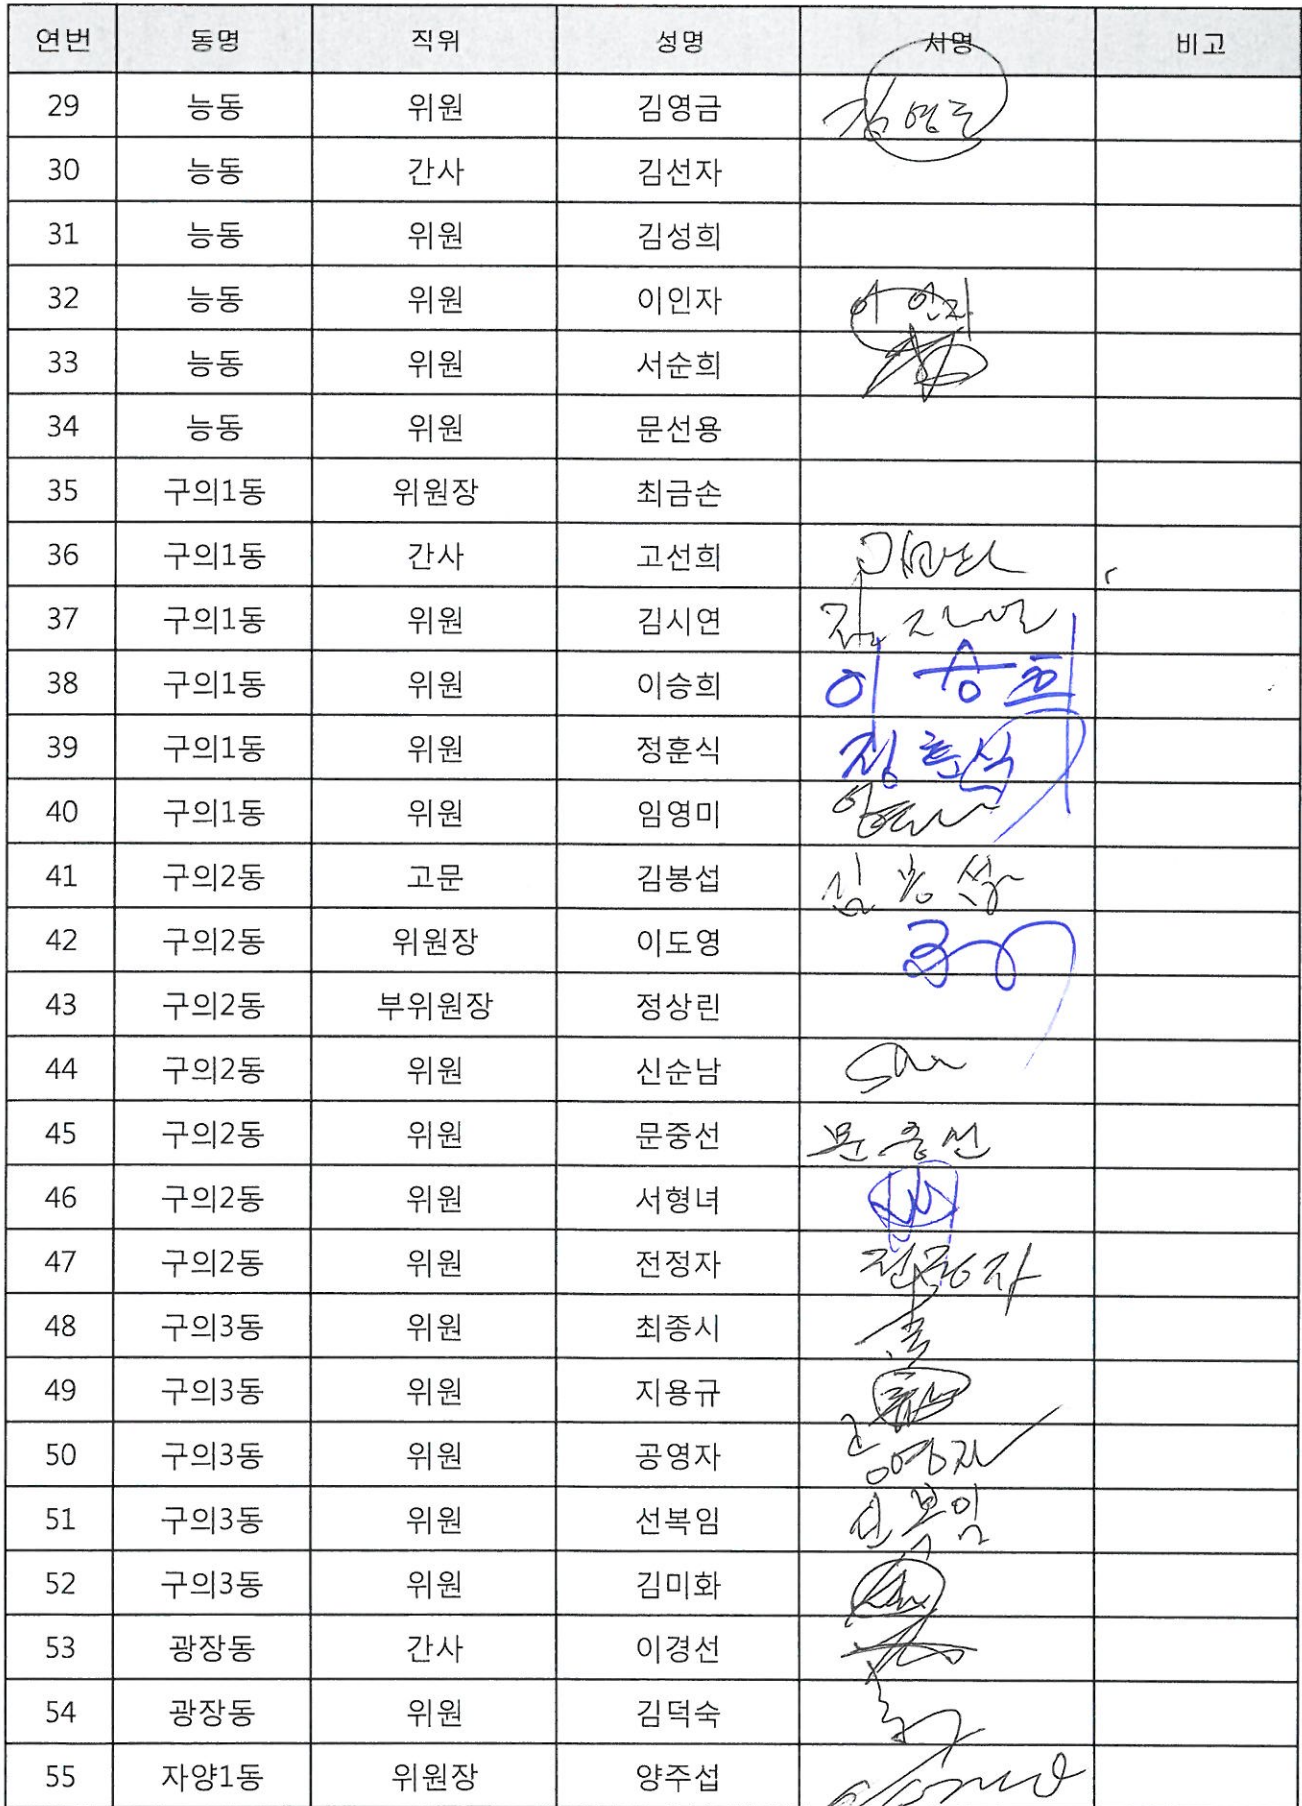 연번 동명 직위 성명 서명 비고
29 능동 위원 김영금 김영금
30 능동 간사 김선자
31 능동 위원 김성희
32 능동 위원 이인자 이인자
33 능동 위원 서순희
34 능동 위원 문선용
35 구의1동 위원장 최금손
36 구의1동 간사 고선희
37 구의1동 위원 김시연
38 구의1동 위원 이승희 이승희
39 구의1동 위원 정훈식 정훈식
40 구의1동 위원 임영미
41 구의2동 고문 김봉섭 김봉섭
42 구의2동 위원장 이도영
43 구의2동 부위원장 정상린
44 구의2동 위원 신순남
45 구의2동 위원 문중선 문중선
46 구의2동 위원 서형녀
47 구의2동 위원 전정자 전정자
48 구의3동 위원 최종시
49 구의3동 위원 지용규
50 구의3동 위원 공영자 공영자
51 구의3동 위원 선복임 선복임
52 구의3동 위원 김미화
53 광장동 간사 이경선
54 광장동 위원 김덕숙
55 자양1동 위원장 양주섭